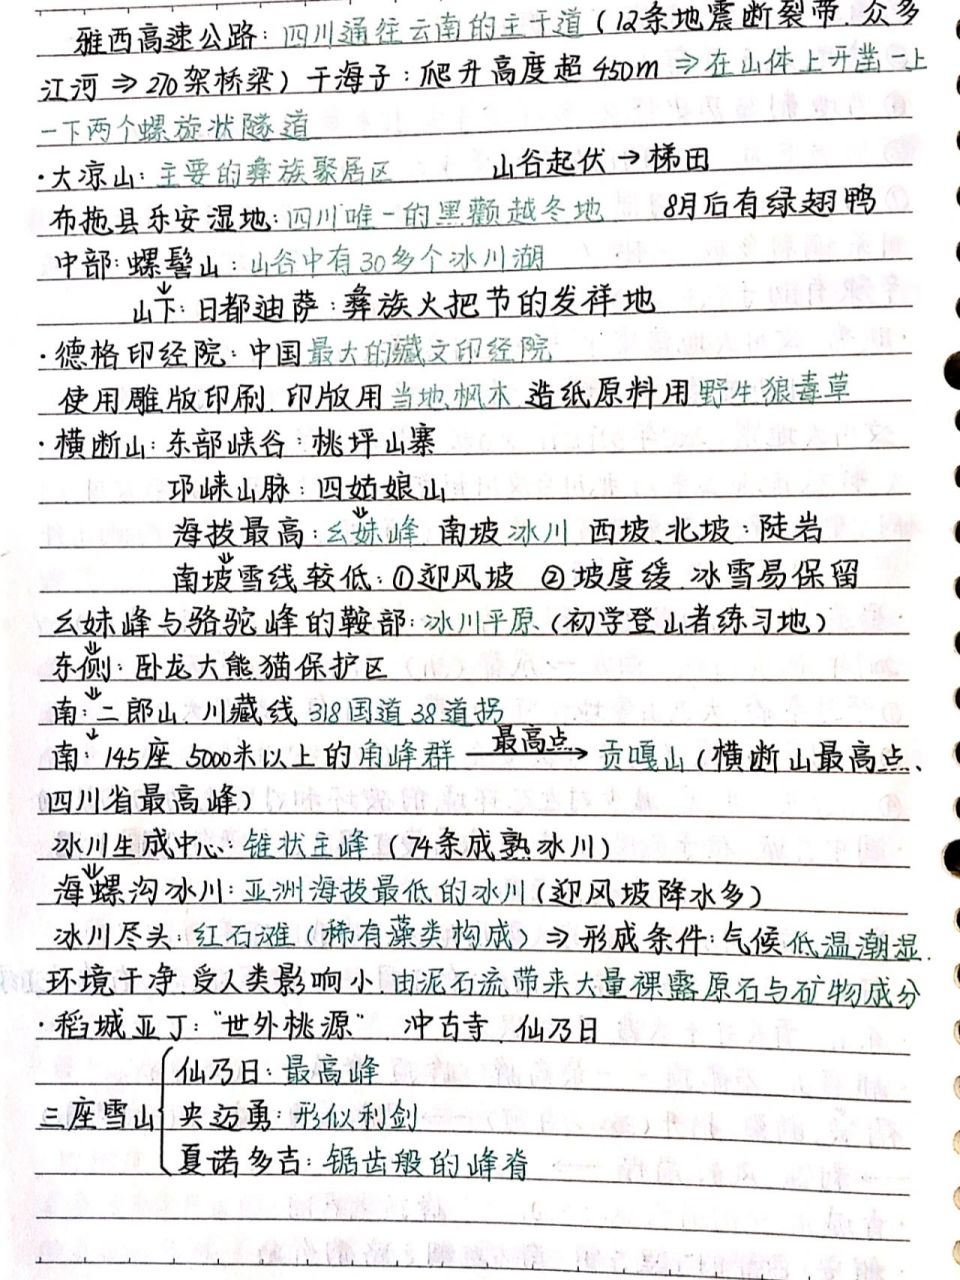 雅西高速公路:四川通往云南的主干道(12条地震断裂带,众多
江河⇒270架桥梁)干海子:爬升高度超450m⇒在山体上开凿一上
一下两个螺旋状隧道
·大凉山:主要的彝族聚居区 山谷起伏→梯田
布拖县乐安湿地:四川唯一的黑颧越冬地 8月后有绿翅鸭
中部:螺髻山:山谷中有30多个冰川湖
山下:日都迪萨:彝族火把节的发祥地
·德格印经院:中国最大的藏文印经院
使用雕版印刷.印版用当地枫木.造纸原料用野生狼毒草
·横断山:东部峡谷:桃坪山寨
邛崃山脉:四姑娘山
海拔最高:幺妹峰.南坡冰川 西坡.北坡·陡岩
南坡雪线较低:①迎风坡 ②坡度缓.冰雪易保留
幺妹峰与骆驼峰的鞍部:冰川平原(初学登山者练习地)
东侧:卧龙大熊猫保护区
南:二郎山:川藏线 318国道38道拐
南:145座5000米以上的角峰群 最高点→贡嘎山(横断山最高点、
四川省最高峰)
冰川生成中心:锥状主峰(74条成熟冰川)
海螺沟冰川:亚洲海拔最低的冰川(迎风坡降水多)
冰川尽头:红石滩(稀有藻类构成)⇒形成条件:气候低温潮湿.
环境干净.受人类影响小.由泥石流带来大量裸露原石与矿物成分
·稻城亚丁:"世外桃源" 冲古寺.仙乃日
仙乃日:最高峰
三座雪山 央迈勇:形似利剑
夏诺多吉:锯齿般的峰脊